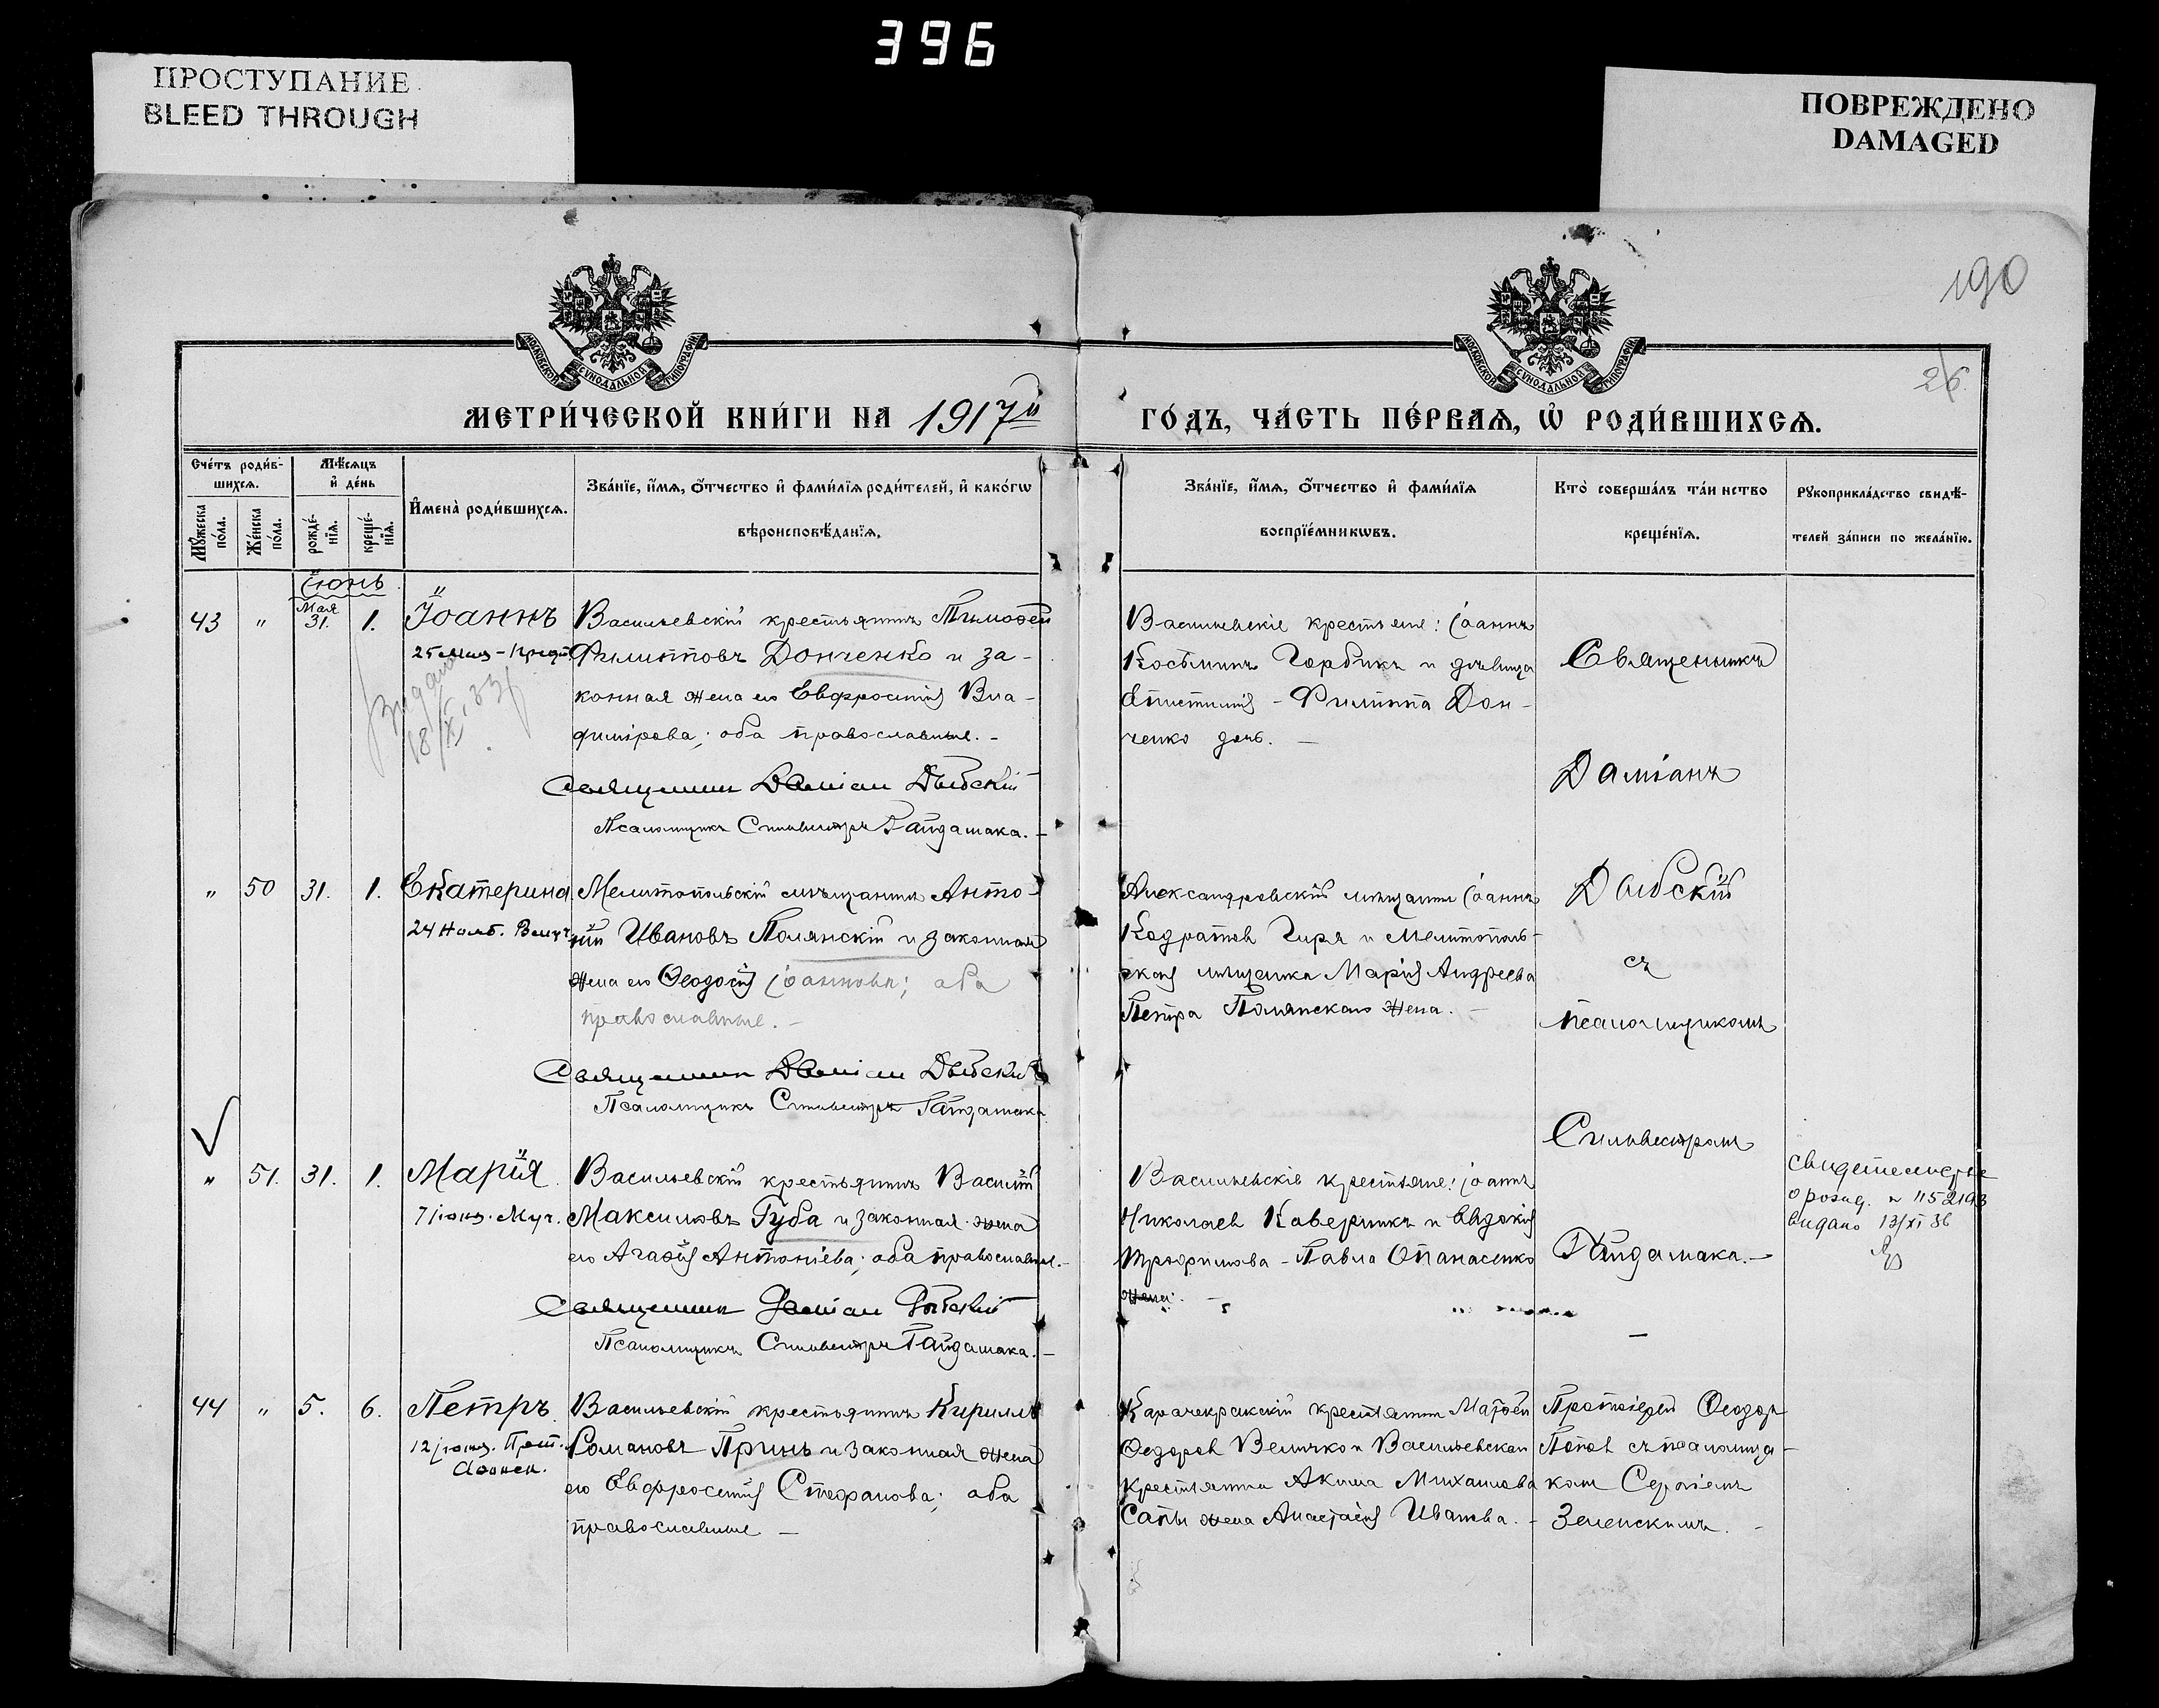 396
ПРОСТУПАНИЕ
BLEED THROUGH
ПОВРЕЖДЕНО
DAMAGED
190
26.
МОСКОВСКОЙ СѴНОДАЛЬНОЙ ТИПОГРАФІИ
МОСКОВСКОЙ СѴНОДАЛЬНОЙ ТИПОГРАФІИ
МЕТРИ́ЧЕСКОЙ КНИ́ГИ НА 1917й ГО́ДЪ, ЧА́СТЬ ПЕ́РВАѦ, Ѡ҆ РОДИ́ВШИХСѦ.
Сче́тъ роди́в-
шихсѧ.
Мѣ́сѧцъ
и҆ де́нь
Мꙋ́жеска по́ла.
Же́нска по́ла.
рожде́-
нїѧ.
креще́-
нїѧ.
И҆мена̀ роди́вшихсѧ.
Зва́нїе, и҆́мѧ, ѻ҆́тчество и҆ фами́лїѧ роди́телей, и҆ како́гѡ
вѣроисповѣ́данїѧ.
Зва́нїе, и҆́мѧ, ѻ҆́тчество и҆ фами́лїѧ
воспрїе́мникѡвъ.
Кто̀ соверша́лъ та́инство
креще́нїѧ.
Рꙋкоприкла́дство свидѣ́-
телей за́писи по жела́нїю.
Іюнь
43 " Мая 31. 1. Іоаннъ
25 мая
Васильевскій крестьянинъ Тимоѳей
Филипповъ Донченко и за-
конная жена его Евфросинія Вла-
димірова; оба православные. -
Священник Даміан Дыбскій
Псаломщикъ Сильвестръ Гайдамака. -
Васильевскіе крестьяне: Іоаннъ
Косьминъ Горбикъ и дѣвица
Епистимія - Филиппа Дон-
ченко дочь. -
Священникъ
Даміанъ
Дыбскій
съ
псаломщикомъ
Сильвестромъ
Гайдамака. -
Видано
18/XI 33
" 50 31. 1. Екатерина
24 Нояб. Велмч.
Мелитопольскій мѣщанинъ Анто-
ній Ивановъ Полянскій и законная
жена его Ѳеодосія Іоаннова; оба
православные. -
Священник Даміан Дыбскій
Псаломщикъ Сильвестръ Гайдамака
Александровскій мѣщанинъ Іоаннъ
Кодратов Гиря и Мелитополь-
ская мѣщанка Марія Андреева
Петра Полянскаго жена. -
" 51. 31. 1. Марія
7 іюня. Муч.
Васильевскій крестьянинъ Василій
Максимовъ Губа и законная жена
его Агаѳія Антоніева; оба православные. -
Священник Даміан Дыбскій
Псаломщикъ Сильвестръ Гайдамака. -
Васильевскіе крестьяне: Іоаннъ
Николаев Каверникъ и Евдокія
Трофимова - Павла Опанасенко
жена. -
свидетельство
о рожд. № 1152193
видано 13/XI 36
44 " 5. 6. Петръ
12 іюня. Преп.
Аѳонск.
Васильевскій крестьянинъ Кириллъ
Романовъ Принь и законная жена
его Евфросинія Стефанова; оба
православные -
Карачекракскій крестьянин Матѳей
Ѳедоров Величко и Васильевскаго
крестьянина Акима Михаилова
Сапы жена Анастасія Иванова. -
Протоіерей Ѳеодор
Попов съ псаломщи-
ком Сергіемъ
Зеленскимъ. -